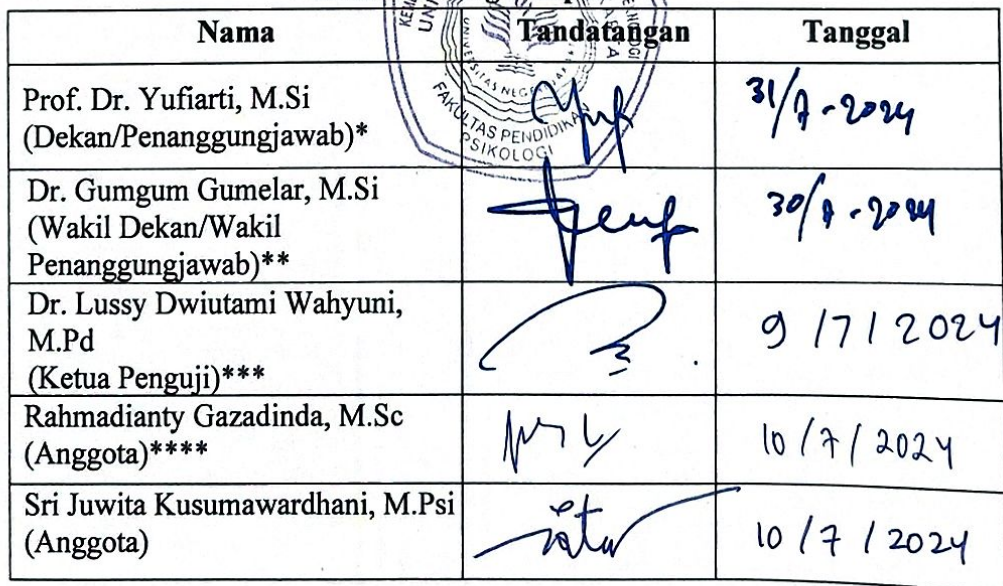 Nama Tandatangan Tanggal
Prof. Dr. Yufiarti, M.Si
(Dekan/Penanggungjawab)*
31/7-2024
Dr. Gumgum Gumelar, M.Si
(Wakil Dekan/Wakil
Penanggungjawab)**
30/7-2024
Dr. Lussy Dwiutami Wahyuni,
M.Pd
(Ketua Penguji)***
9/7/2024
Rahmadianty Gazadinda, M.Sc
(Anggota)****
10/7/2024
Sri Juwita Kusumawardhani, M.Psi
(Anggota)
10/7/2024
UNIVERSITAS NEGERI
FAKULTAS PENDIDIKAN
PSIKOLOGI